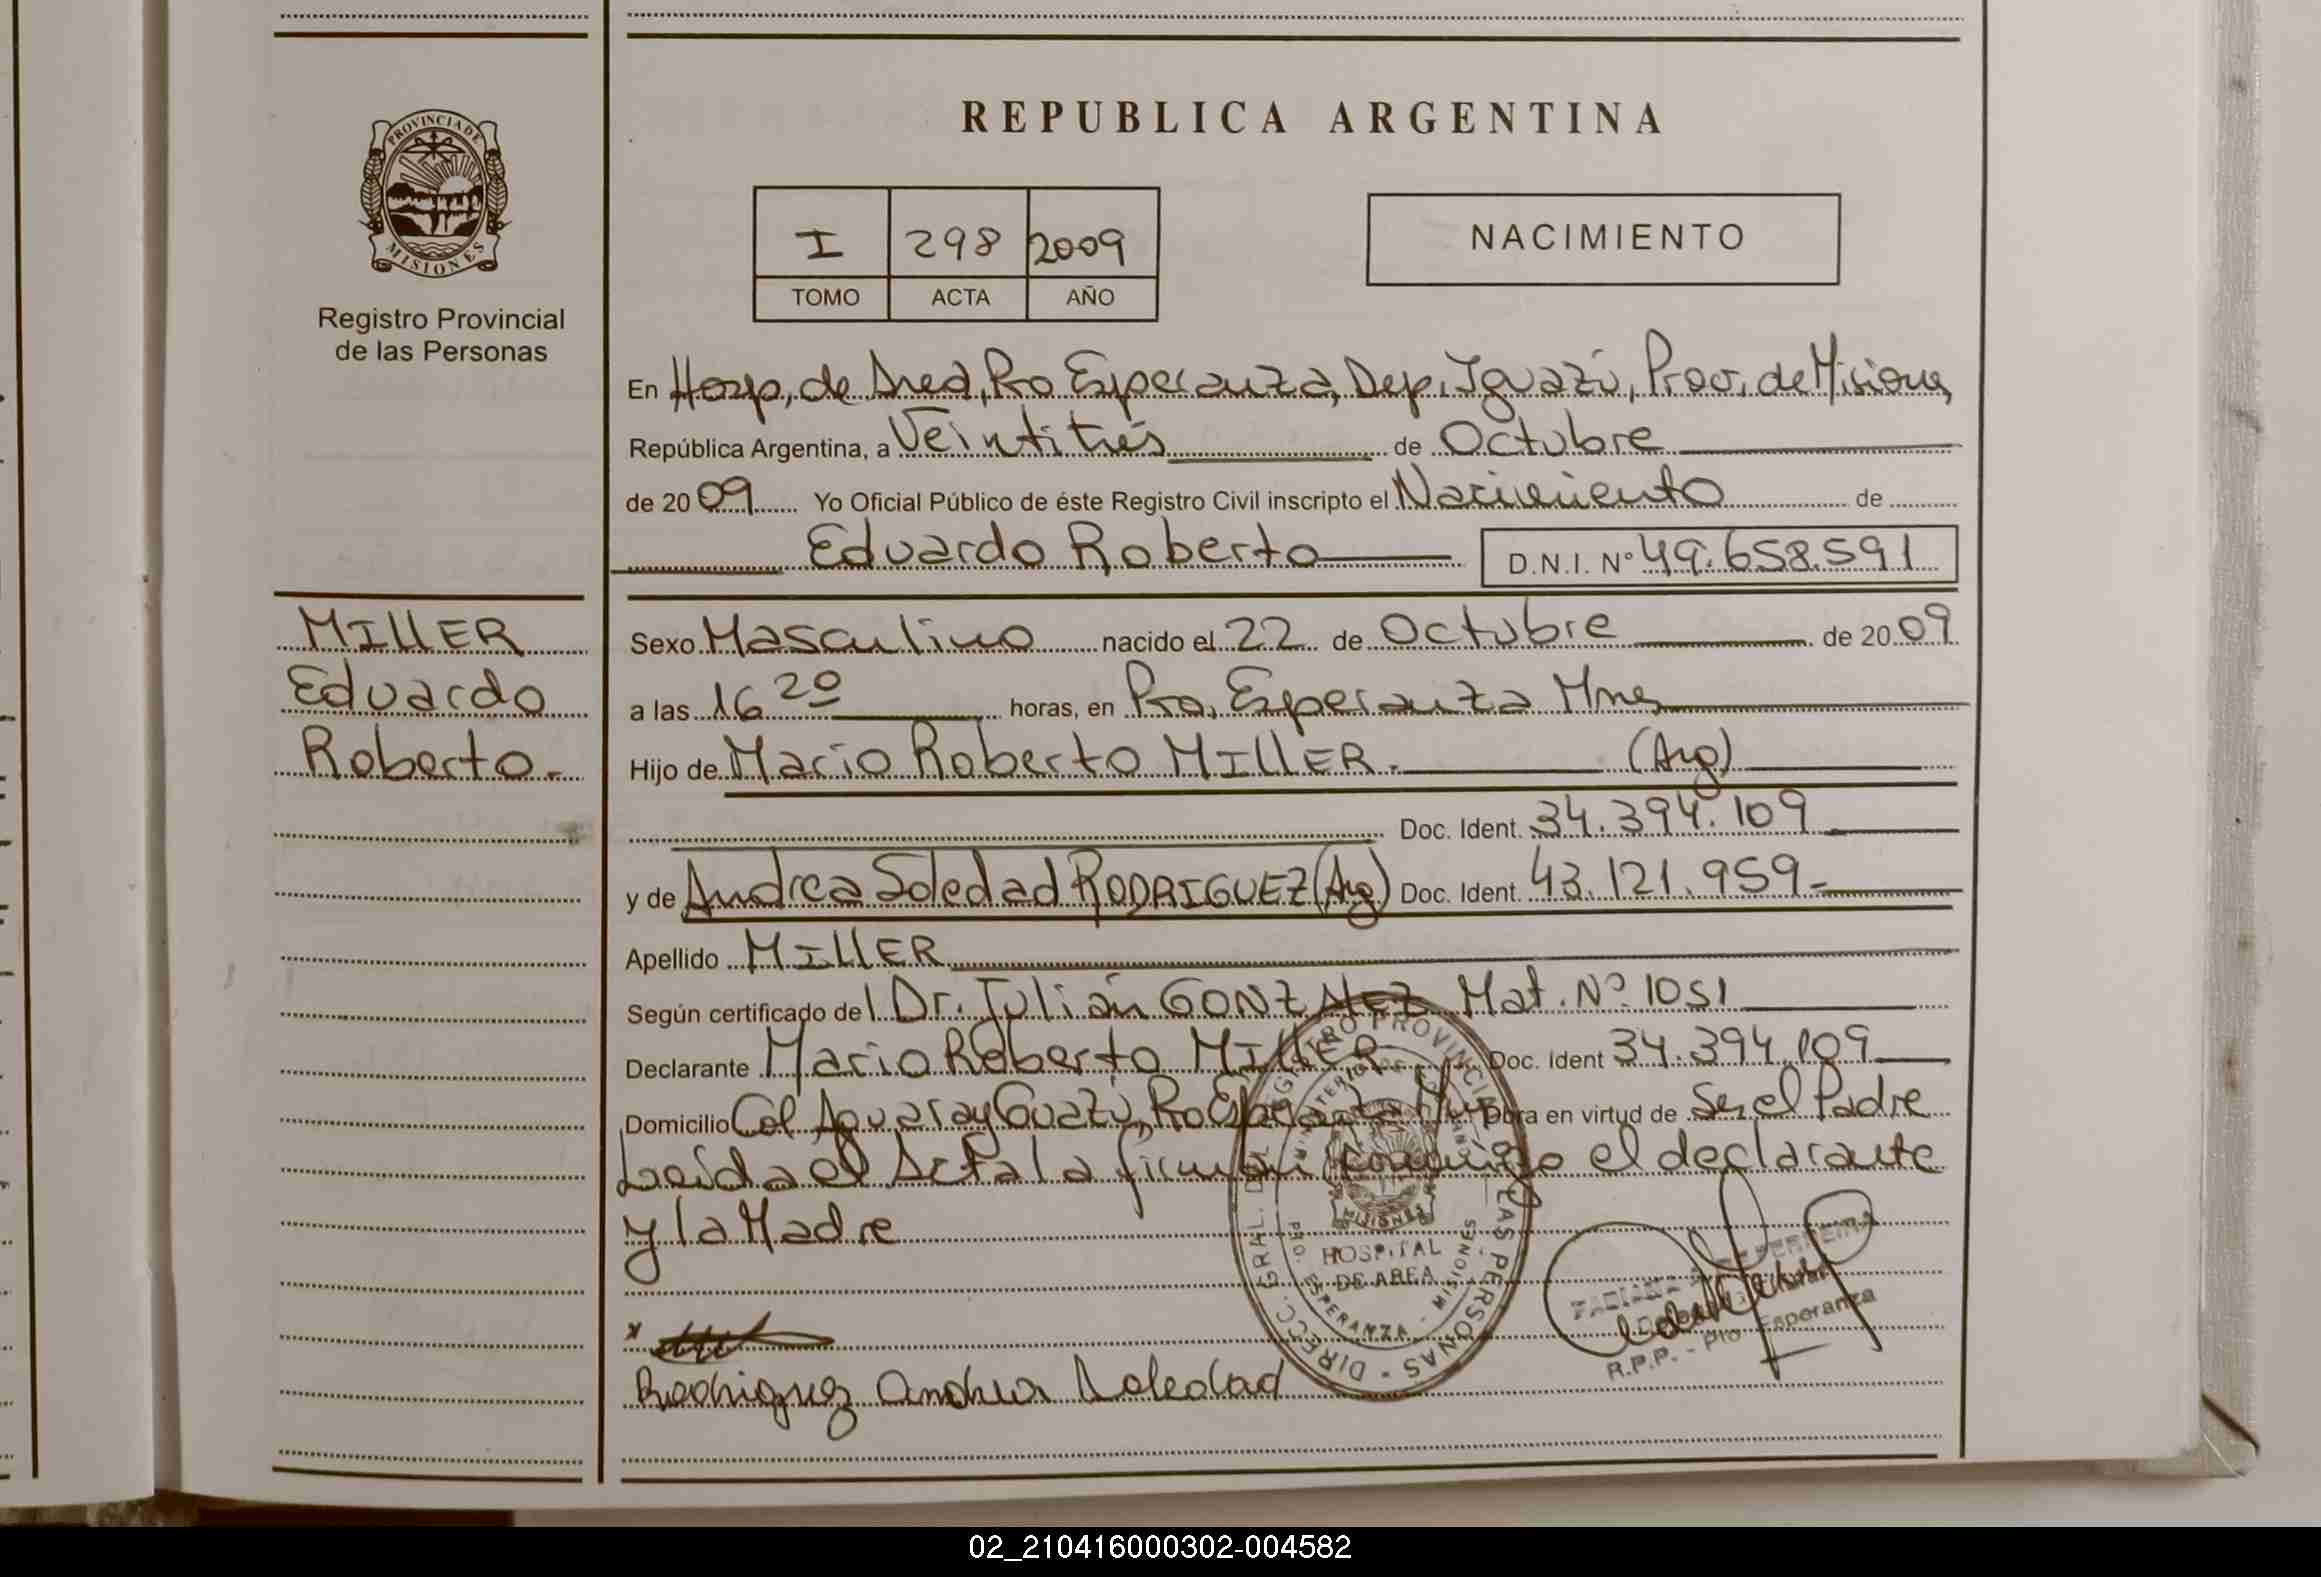 REPUBLICA ARGENTINA
PROVINCIA DE
MISIONES
Registro Provincial
de las Personas
I 298 2009
TOMO ACTA AÑO
NACIMIENTO
En Hosp, de Area, Pto Esperanza, Dep. Iguazú, Prov. de Misiones,
República Argentina, a Veintitrés de Octubre
de 2009 Yo Oficial Público de éste Registro Civil inscripto el Nacimiento de
Eduardo Roberto D.N.I. Nº 49.658.591
MILLER
Eduardo
Roberto.-
Sexo Masculino nacido el 22 de Octubre de 2009
a las 16 20 horas, en Pto. Esperanza Mnes
Hijo de Mario Roberto MILLER. (Arg)
Doc. Ident. 34.394.109
y de Andrea Soledad RODRIGUEZ (Arg) Doc. Ident. 43.121.959-
Apellido MILLER
Según certificado del Dr. Julián GONZALEZ Mat. Nº 1051
Declarante Mario Roberto MILLER Doc. Ident 34.394.109
Domicilio Col Aguaray Guazú, Pto Esperanza Obra en virtud de Ser el Padre
Leída el Acta la firman conmigo el declarante
y la Madre
DIRECC. GRAL. DEL REGISTRO PROVINCIAL DE LAS PERSONAS
HOSPITAL
DE AREA
PTO. ESPERANZA - MISIONES
MISIONES
FABIANA
R.P.P. - Pto Esperanza
x
Rodriguez Andrea Soledad
02_210416000302-004582